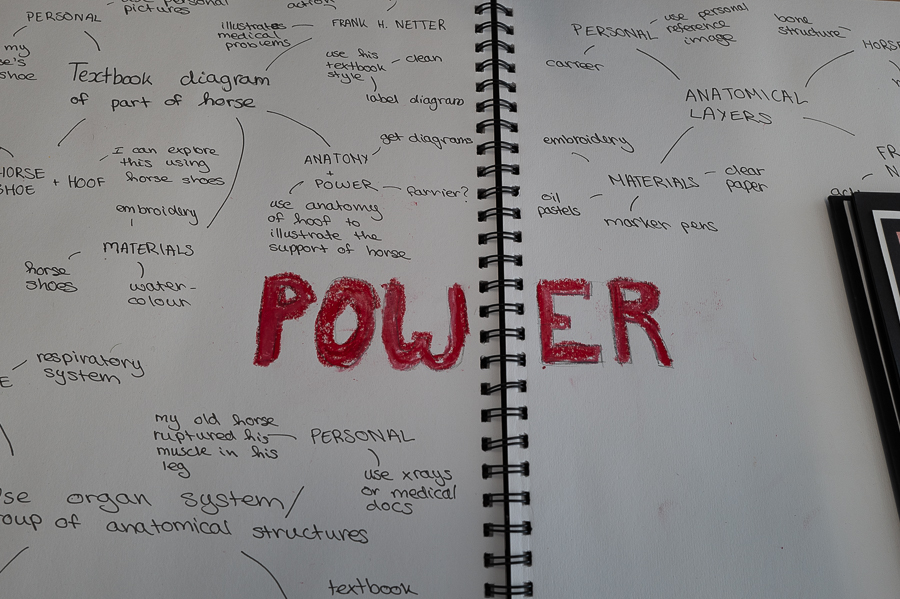 PERSONAL
use personal
pictures
my
shoe
Textbook diagram
of part of horse
illustrates
medical
problems
action
FRANK H. NETTER
use his
textbook
style
clean
label diagram
HORSE
SHOE
+ HOOF
I can explore
this using
horse shoes
embroidery
MATERIALS
horse
shoes
water-
colour
get diagrams
ANATOMY
+
POWER
farrier?
use anatomy
of hoof to
illustrate the
support of horse
POWER
respiratory
system
my old horse
ruptured his
muscle in his
leg
PERSONAL
use xrays
or medical
docs
organ system/
of anatomical structures
textbook
PERSONAL
use personal
reference
image
career
bone
structure
HORSE
ANATOMICAL
LAYERS
embroidery
MATERIALS
clear
paper
oil
pastels
marker pens